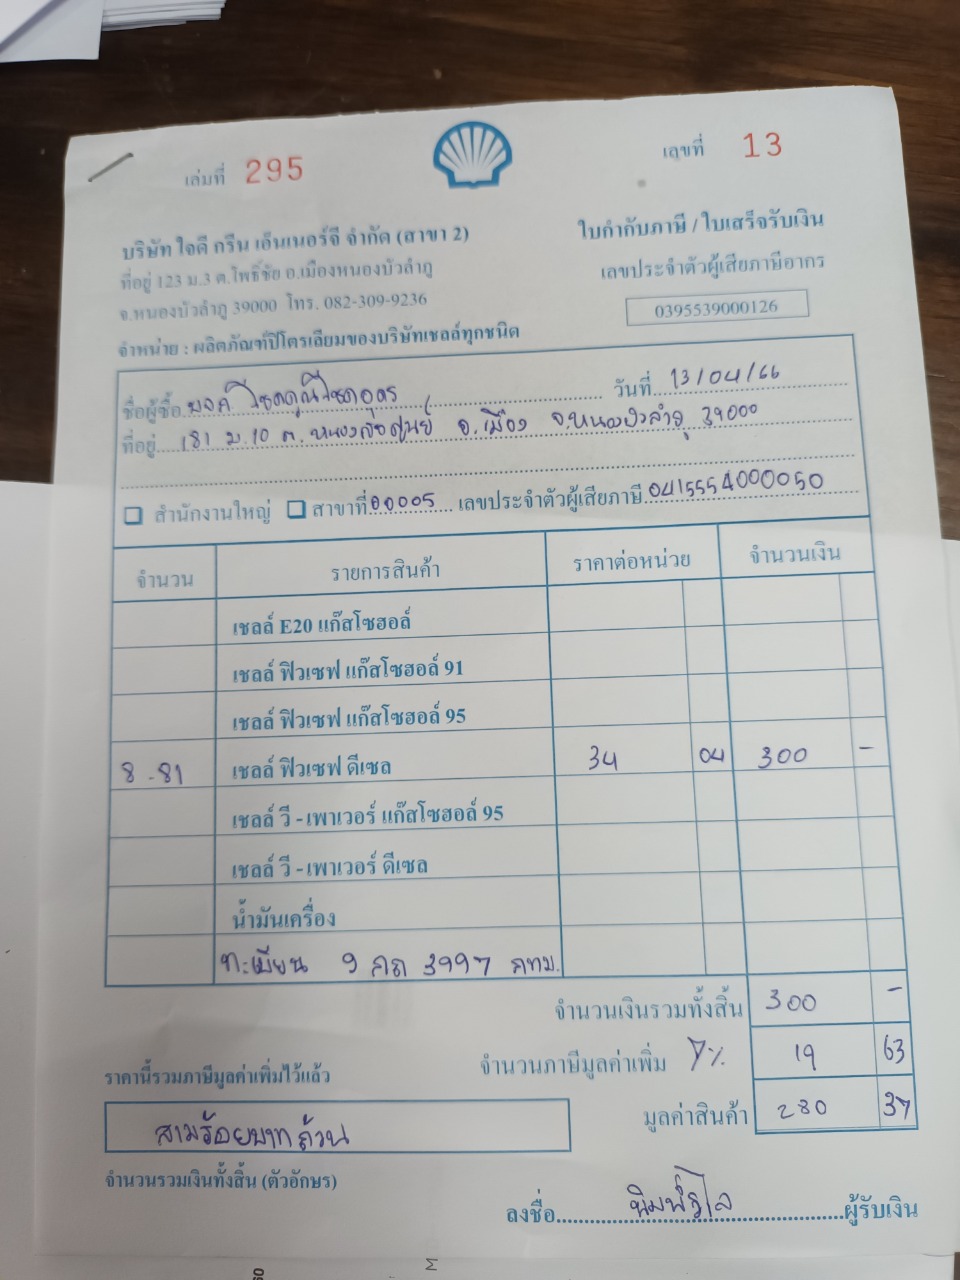 เล่มที่ 295
เลขที่ 13
บริษัท ใจดี กรีน เอ็นเนอร์จี จำกัด (สาขา 2)
ใบกำกับภาษี / ใบเสร็จรับเงิน
ที่อยู่ 123 ม.3 ต.โพธิ์ชัย อ.เมืองหนองบัวลำภู
เลขประจำตัวผู้เสียภาษีอากร
จ.หนองบัวลำภู 39000 โทร. 082-309-9236
0395539000126
จำหน่าย : ผลิตภัณฑ์ปิโตรเลียมของบริษัทเชลล์ทุกชนิด
ชื่อผู้ซื้อ วันที่ 13/04/66
ที่อยู่ 181 ม.10 ต. อ.เมือง จ.หนองบัวลำภู 39000
สำนักงานใหญ่ สาขาที่ 00005 เลขประจำตัวผู้เสียภาษี 0415554000050
จำนวน รายการสินค้า ราคาต่อหน่วย จำนวนเงิน
เชลล์ E20 แก๊สโซฮอล์
เชลล์ ฟิวเซฟ แก๊สโซฮอล์ 91
เชลล์ ฟิวเซฟ แก๊สโซฮอล์ 95
8.81 เชลล์ ฟิวเซฟ ดีเซล 34 04 300 -
เชลล์ วี - เพาเวอร์ แก๊สโซฮอล์ 95
เชลล์ วี - เพาเวอร์ ดีเซล
น้ำมันเครื่อง
ทะเบียน 9 กถ 3997 กทม.
จำนวนเงินรวมทั้งสิ้น 300 -
จำนวนภาษีมูลค่าเพิ่ม 7% 19 63
ราคานี้รวมภาษีมูลค่าเพิ่มไว้แล้ว
มูลค่าสินค้า 280 37
สามร้อยบาทถ้วน
จำนวนรวมเงินทั้งสิ้น (ตัวอักษร)
ลงชื่อ ผู้รับเงิน